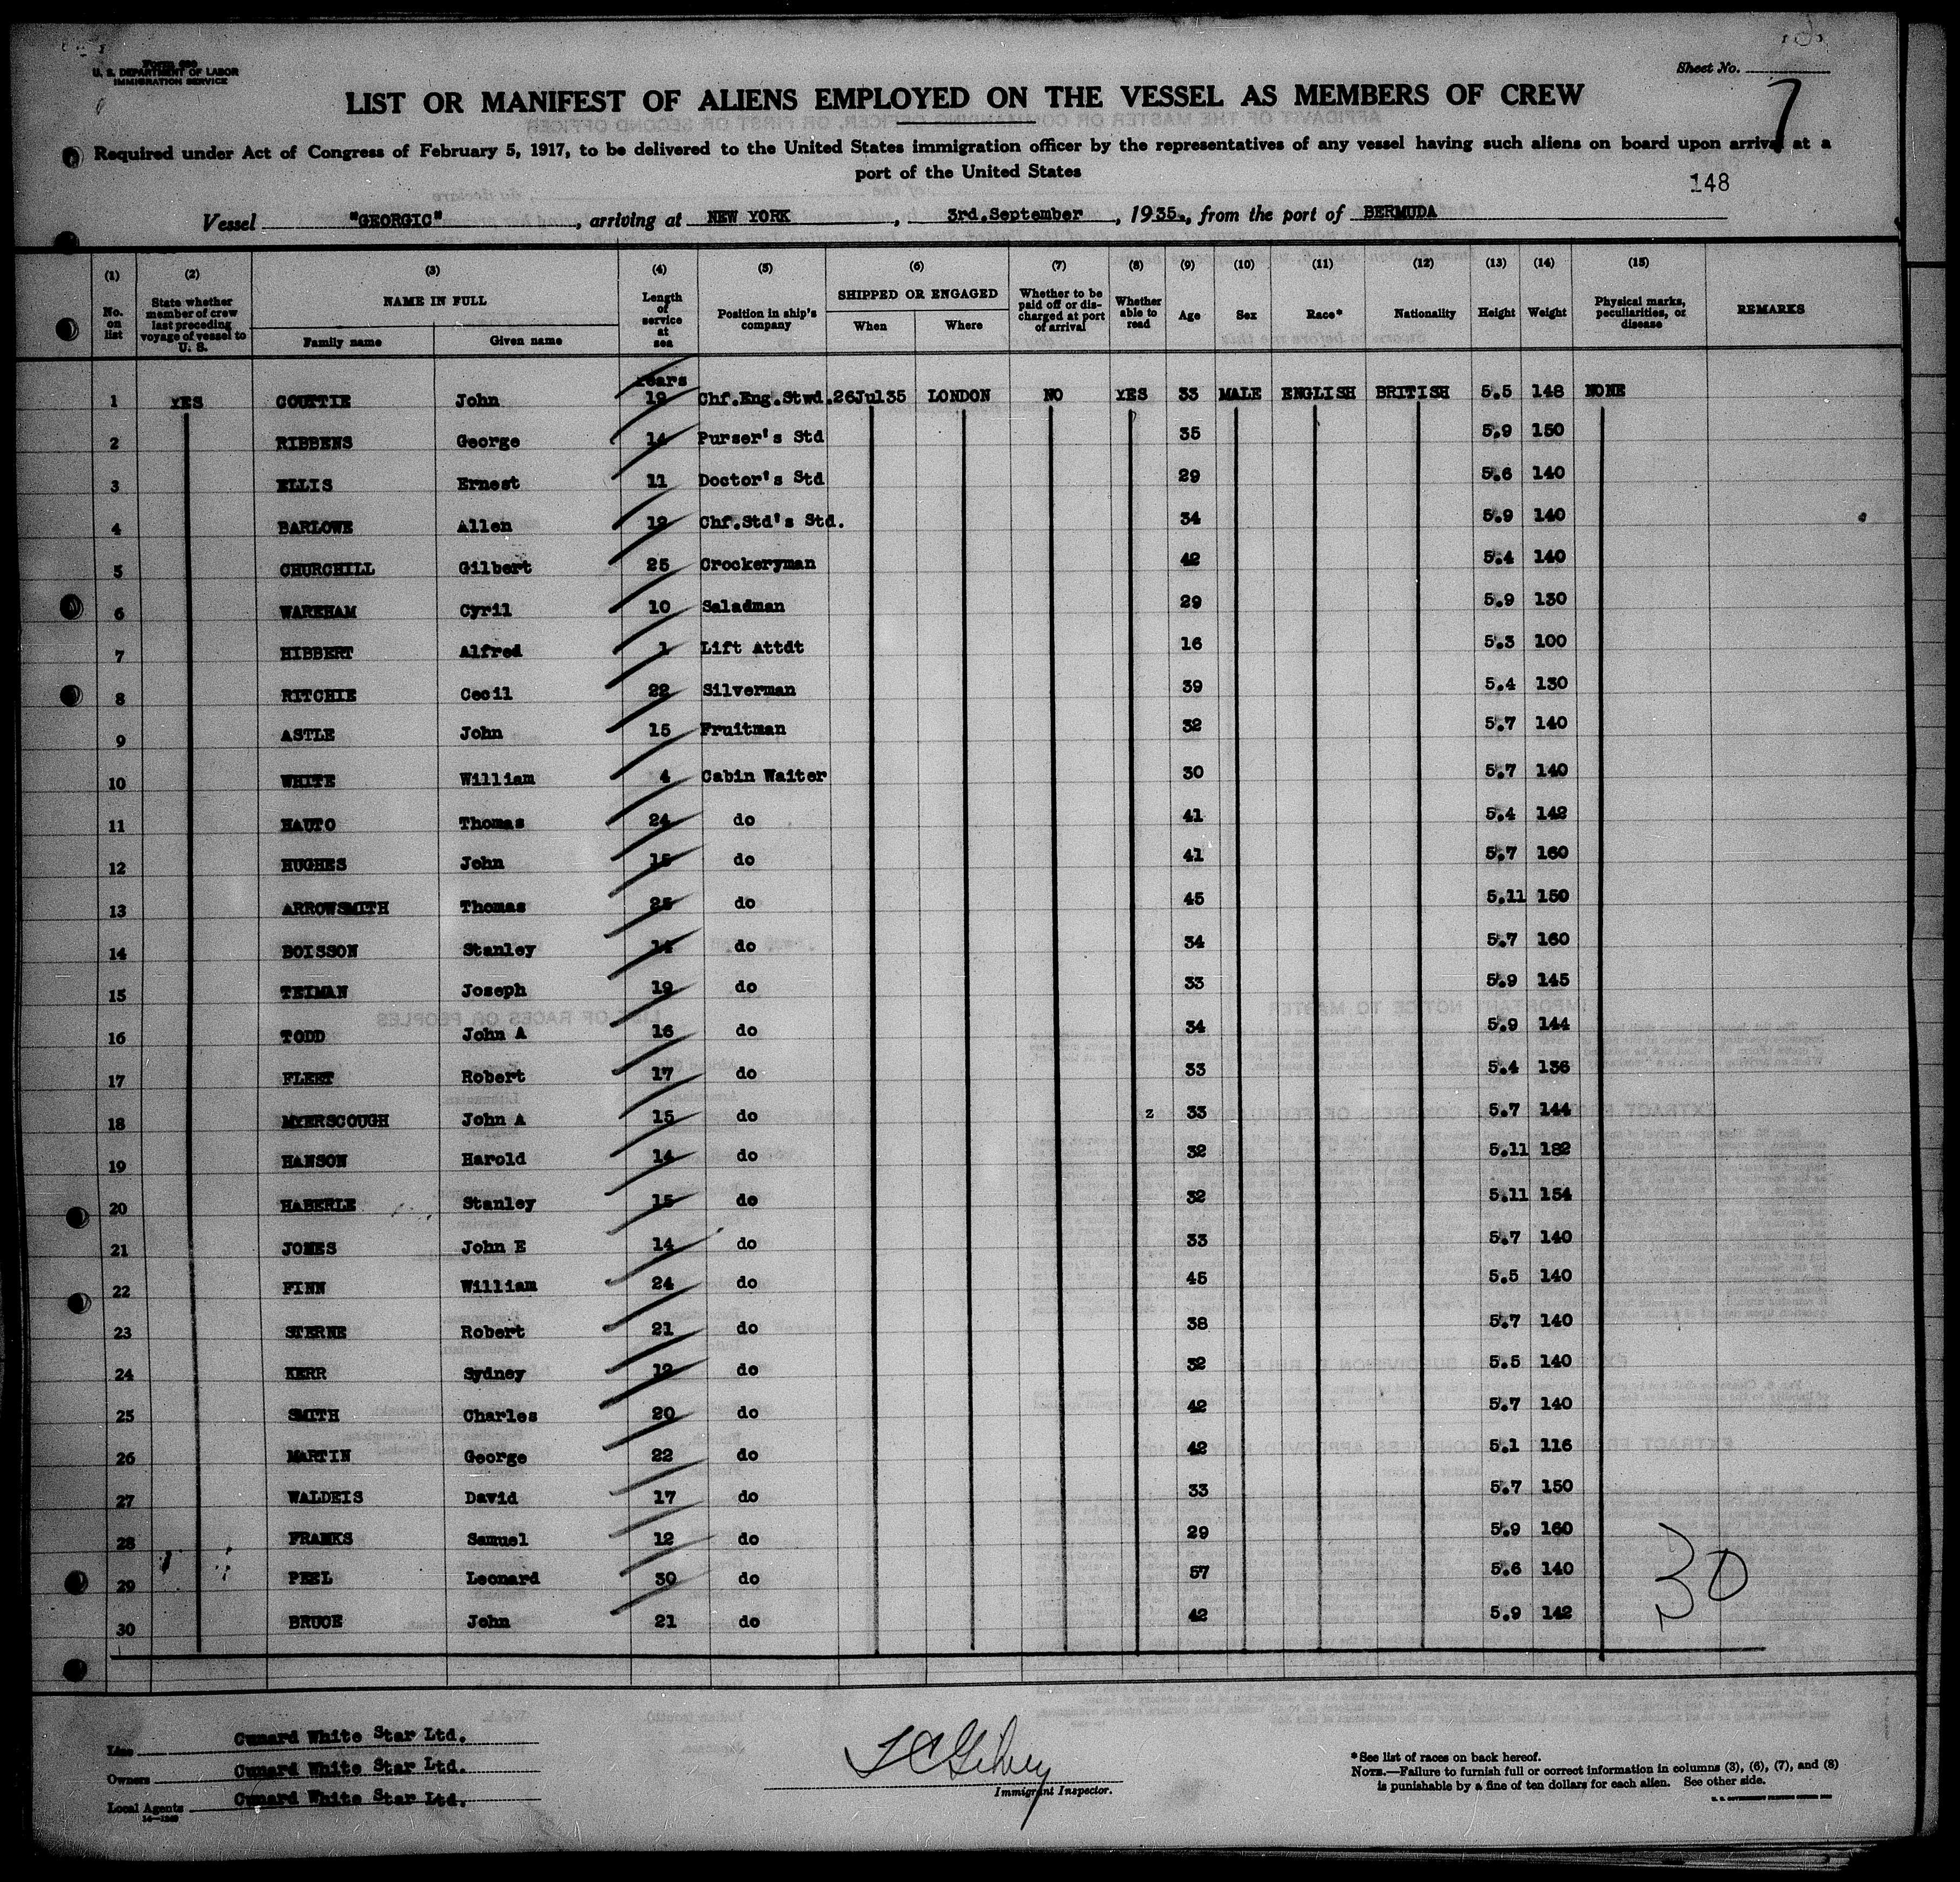 Form 680
U. S. DEPARTMENT OF LABOR
IMMIGRATION SERVICE
Sheet No.
7
LIST OR MANIFEST OF ALIENS EMPLOYED ON THE VESSEL AS MEMBERS OF CREW
Required under Act of Congress of February 5, 1917, to be delivered to the United States immigration officer by the representatives of any vessel having such aliens on board upon arrival at a
port of the United States
148
Vessel "GEORGIC", arriving at NEW YORK, 3rd.September, 1935., from the port of BERMUDA
(1) (2) (3) (4) (5) (6) (7) (8) (9) (10) (11) (12) (13) (14) (15)
No. on list State whether member of crew last preceding voyage of vessel to U. S. NAME IN FULL Family name Given name Length of service at sea Position in ship's company SHIPPED OR ENGAGED When Where Whether to be paid off or discharged at port of arrival Whether able to read Age Sex Race* Nationality Height Weight Physical marks, peculiarities, or disease REMARKS
Years
1 YES COUTTIE John 19 Chf.Eng.Stwd.26Jul35 LONDON NO YES 33 MALE ENGLISH BRITISH 5.5 148 NONE
2 RIBBENS George 14 Purser's Std 35 5.9 150
3 ELLIS Ernest 11 Doctor's Std 29 5.6 140
4 BARLOWE Allen 19 Chf.Std's Std. 34 5.9 140
5 CHURCHILL Gilbert 25 Crockeryman 42 5.4 140
6 WAREHAM Cyril 10 Saladman 29 5.9 130
7 HIBBERT Alfred 1 Lift Attdt 16 5.3 100
8 RITCHIE Cecil 22 Silverman 39 5.4 130
9 ASTLE John 15 Fruitman 32 5.7 140
10 WHITE William 4 Cabin Waiter 30 5.7 140
11 HAUTO Thomas 24 do 41 5.4 142
12 HUGHES John 15 do 41 5.7 160
13 ARROWSMITH Thomas 25 do 45 5.11 150
14 BOISSON Stanley 14 do 34 5.7 160
15 TEIMAN Joseph 19 do 33 5.9 145
16 TODD John A 16 do 34 5.9 144
17 FLEET Robert 17 do 33 5.4 136
18 MYERSCOUGH John A 15 do z 33 5.7 144
19 HANSON Harold 14 do 32 5.11 182
20 HABERLE Stanley 15 do 32 5.11 154
21 JONES John E 14 do 33 5.7 140
22 FINN William 24 do 45 5.5 140
23 STERNE Robert 21 do 38 5.7 140
24 KERR Sydney 12 do 32 5.5 140
25 SMITH Charles 20 do 42 5.7 140
26 MARTIN George 22 do 42 5.1 116
27 WALDEIS David 17 do 33 5.7 150
28 FRANKS Samuel 12 do 29 5.9 160
29 PEEL Leonard 30 do 57 5.6 140
30 BRUCE John 21 do 42 5.9 142
30
Line Cunard White Star Ltd.
Owners Cunard White Star Ltd.
Local Agents Cunard White Star Ltd.
Immigrant Inspector.
*See list of races on back hereof.
NOTE.—Failure to furnish full or correct information in columns (3), (6), (7), and (8)
is punishable by a fine of ten dollars for each alien. See other side.